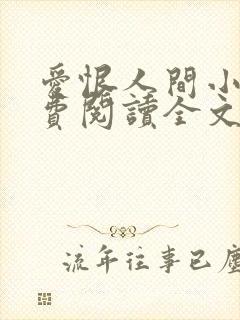 愛恨人間小
費閱讀全文
流年往事已塵